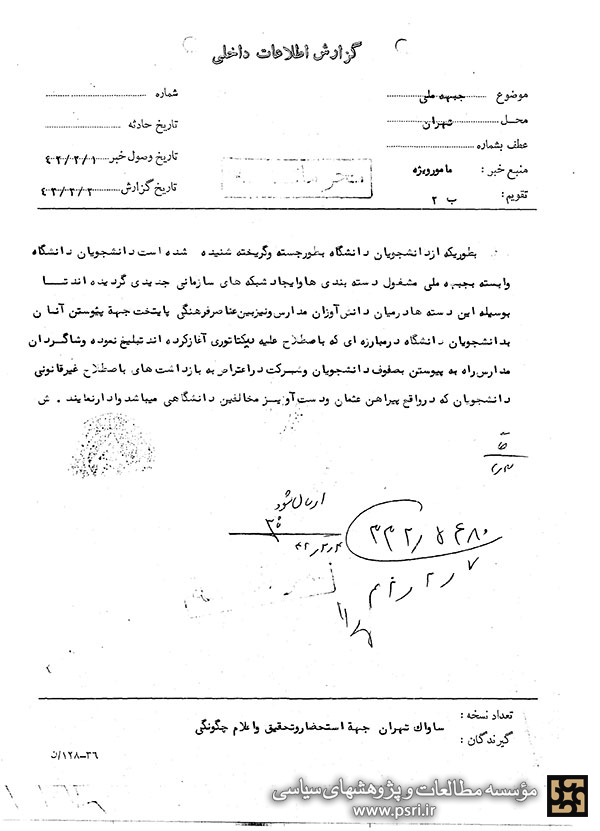 گزارش اطلاعات داخلی
موضوع جبهه ملی
محل تهران
عطف بشماره
منبع خبر : مامور ویژه
تقویم : ب ۲
شماره
تاریخ حادثه
تاریخ وصول خبر ۴۲/۲/۱
تاریخ گزارش ۴۲/۲/۲
بطوریکه از دانشجویان دانشگاه بطور جسته و گریخته شنیده شده است دانشجویان دانشگاه
وابسته بجبهه ملی مشغول دسته بندی ها و ایجاد شبکه های سازمانی جدیدی گردیده اند تا
بوسیله این دسته ها در میان دانش آوزان مدارس و نیز بین عناصر فرهنگی پایتخت جهة پیوستن آنان
بدانشجویان دانشگاه در مبارزه ای که باصطلاح علیه دیکتاتوری آغاز کرده اند تبلیغ نموده و شاگردان
مدارس راه به پیوستن بصفوف دانشجویان و شرکت در اعتراض به بازداشت های باصطلاح غیر قانونی
دانشجویان که در واقع پیراهن عثمان و دست آویز مخالفین دانشگاهی میباشد وادار نمایند . ش
ارسال شود
۴۲٫۲٫۴
تعداد نسخه :
گیرندگان : ساواک تهران جهة استحضار و تحقیق و اعلام چگونگی
۳۶-۱۲۸/ن
مؤسسه مطالعات و پژوهشهای سیاسی
www.psri.ir